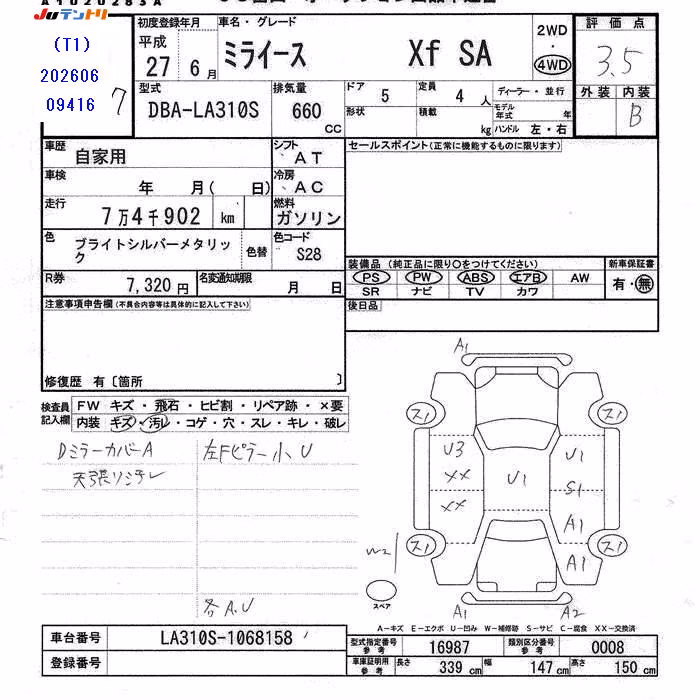 Juテントリ
(T1)
202606
09416
7
初度登録年月
平成
27 6月
車名・グレード
ミライース Xf SA
2WD
・
4WD
評価点
3.5
外装 内装
B
型式
DBA-LA310S
排気量
660
CC
ドア
5
定員
4 人
形状
積載
kg
ディーラー・並行
モデル年式 年
ハンドル 左・右
車歴
自家用
シフト
AT
車検
年 月( 日)
冷房
AC
走行
7万4千902 km
燃料
ガソリン
色
ブライトシルバーメタリック
色替
色コード
S28
R券
7,320円
名変通知期限
月 日
セールスポイント(正常に機能するものに限ります)
装備品 (純正品に限り〇をつけてください)
PS PW ABS エアB AW
SR ナビ TV カワ
新車保証書
有・無
注意事項申告欄(不具合内容等は具体的に記入して下さい)
後日品
修復歴 有〔箇所 〕
検査員記入欄
FW キズ・飛石・ヒビ割・リペア跡・×要
内装 キズ・汚レ・コゲ・穴・スレ・キレ・破レ
Dミラーカバー A
左Fピラー小U
天張リシミ
各A.U
A1
ス1
ス1
U3
XX
XX
U1
U1
S1
A1
A1
ス1
ス1
W2
スペア
A1
A2
A-キズ E-エクボ U-凹み W-補修跡 S-サビ C-腐食 XX-交換済
車台番号
LA310S-1068158
登録番号
型式指定番号
参考
16987
類別区分番号
参考
0008
車庫証明用
参考
長さ 339 cm 幅 147 cm 高さ 150 cm